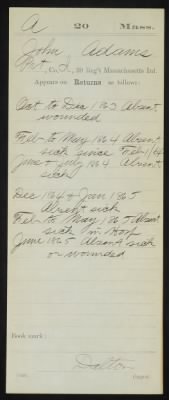 A 20 Mass.
John Adams
Pvt, Co. , 20 Reg't Massachusetts Inf.
Appears on Returns as follows:
Oct to Dec 1863 Absent
wounded
Feb to May 1864 Absent
sick since Feb 1/64
June & July 1864 Absent
sick
Dec 1864 & Jan 1865
Absent sick
Feb to May 1865 Absent
sick in Hosp
June 1865 Absent sick
or wounded
Book mark:
Dalton
Copyist.